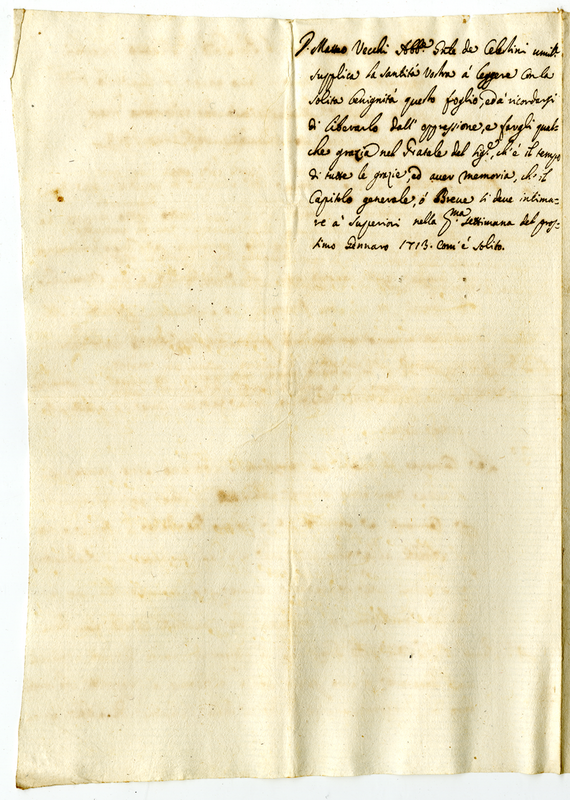 P. Matteo Vecchi Abb.e Gnle de Celestini umilte
supplica la Santità Vostra à leggere con la
solita benignità questo foglio, ed à ricordarsi
di liberarlo dall' oppressione, e fargli qual-
che grazia nel Natale del Sig.re ch' è il tempo
di tutte le grazie, ed aver memoria, ch' il
Capitolo generale, ó Breve si deve intima-
re a' Superiori nella p.ma settimana del pros-
simo Gennaro 1713. com' è solito.